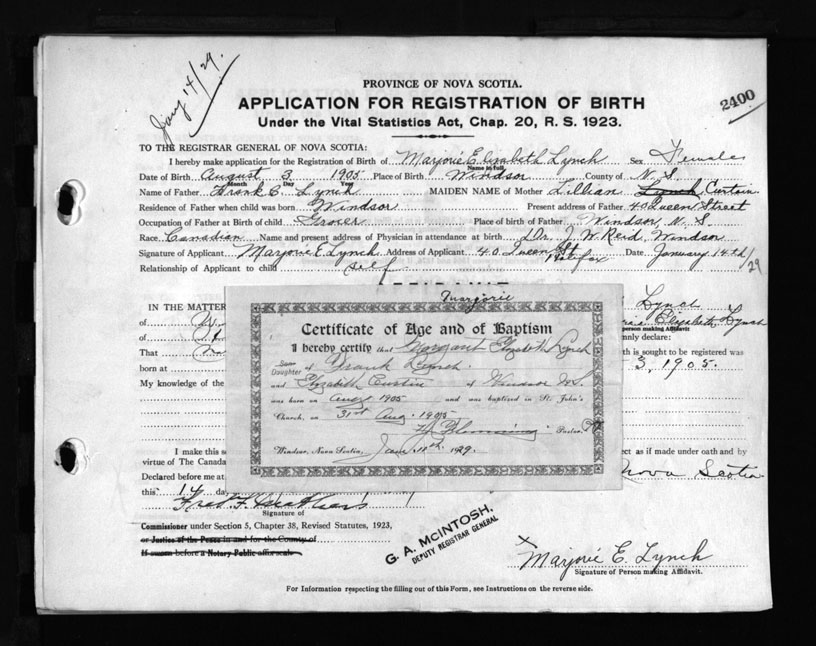 Jany 14/29.
PROVINCE OF NOVA SCOTIA.
APPLICATION FOR REGISTRATION OF BIRTH
2400
Under the Vital Statistics Act, Chap. 20, R. S. 1923.
TO THE REGISTRAR GENERAL OF NOVA SCOTIA:
I hereby make application for the Registration of Birth of Marjorie Elizabeth Lynch Sex Female
Name in full
Date of Birth August 3 1905 Place of Birth Windsor County of N. S.
Month Day Year
Name of Father Frank C. Lynch MAIDEN NAME of Mother Lillian Lynch Curtain
Residence of Father when child was born Windsor Present address of Father 40 Queen Street
Occupation of Father at Birth of child Grocer Place of birth of Father Windsor, N. S.
Race Canadian Name and present address of Physician in attendance at birth Dr. J. W. Reid, Windsor
Signature of Applicant Marjorie E. Lynch Address of Applicant 40 Queen St Halifax Date January 14th/29
Relationship of Applicant to child self
IN THE MATTER
Lynch
of
Elizabeth Lynch
person making Affidavit
of
mnly declare:
That
th is sought to be registered was
born at
3, 1905.
My knowledge of the
Marjorie
Certificate of Age and of Baptism
I hereby certify that Margaret Elizabeth Lynch
Son
Daughter of Frank Lynch
and Elizabeth Curtin of Windsor N.S.
was born on Aug 1905 and was baptized in St. John's
Church, on 31st Aug. 1905
Pastor
Windsor, Nova Scotia, Jan 29.
I make this s
ect as if made under oath and by
virtue of The Canada
Declared before me at
Nova Scotia
this 14 day
Signature of
Commissioner under Section 5, Chapter 38, Revised Statutes, 1923,
or Justice of the Peace in and for the County of
If sworn before a Notary Public affix seal
G. A. McINTOSH,
DEPUTY REGISTRAR GENERAL
x Marjorie E. Lynch
Signature of Person making Affidavit.
For Information respecting the filling out of this Form, see Instructions on the reverse side.